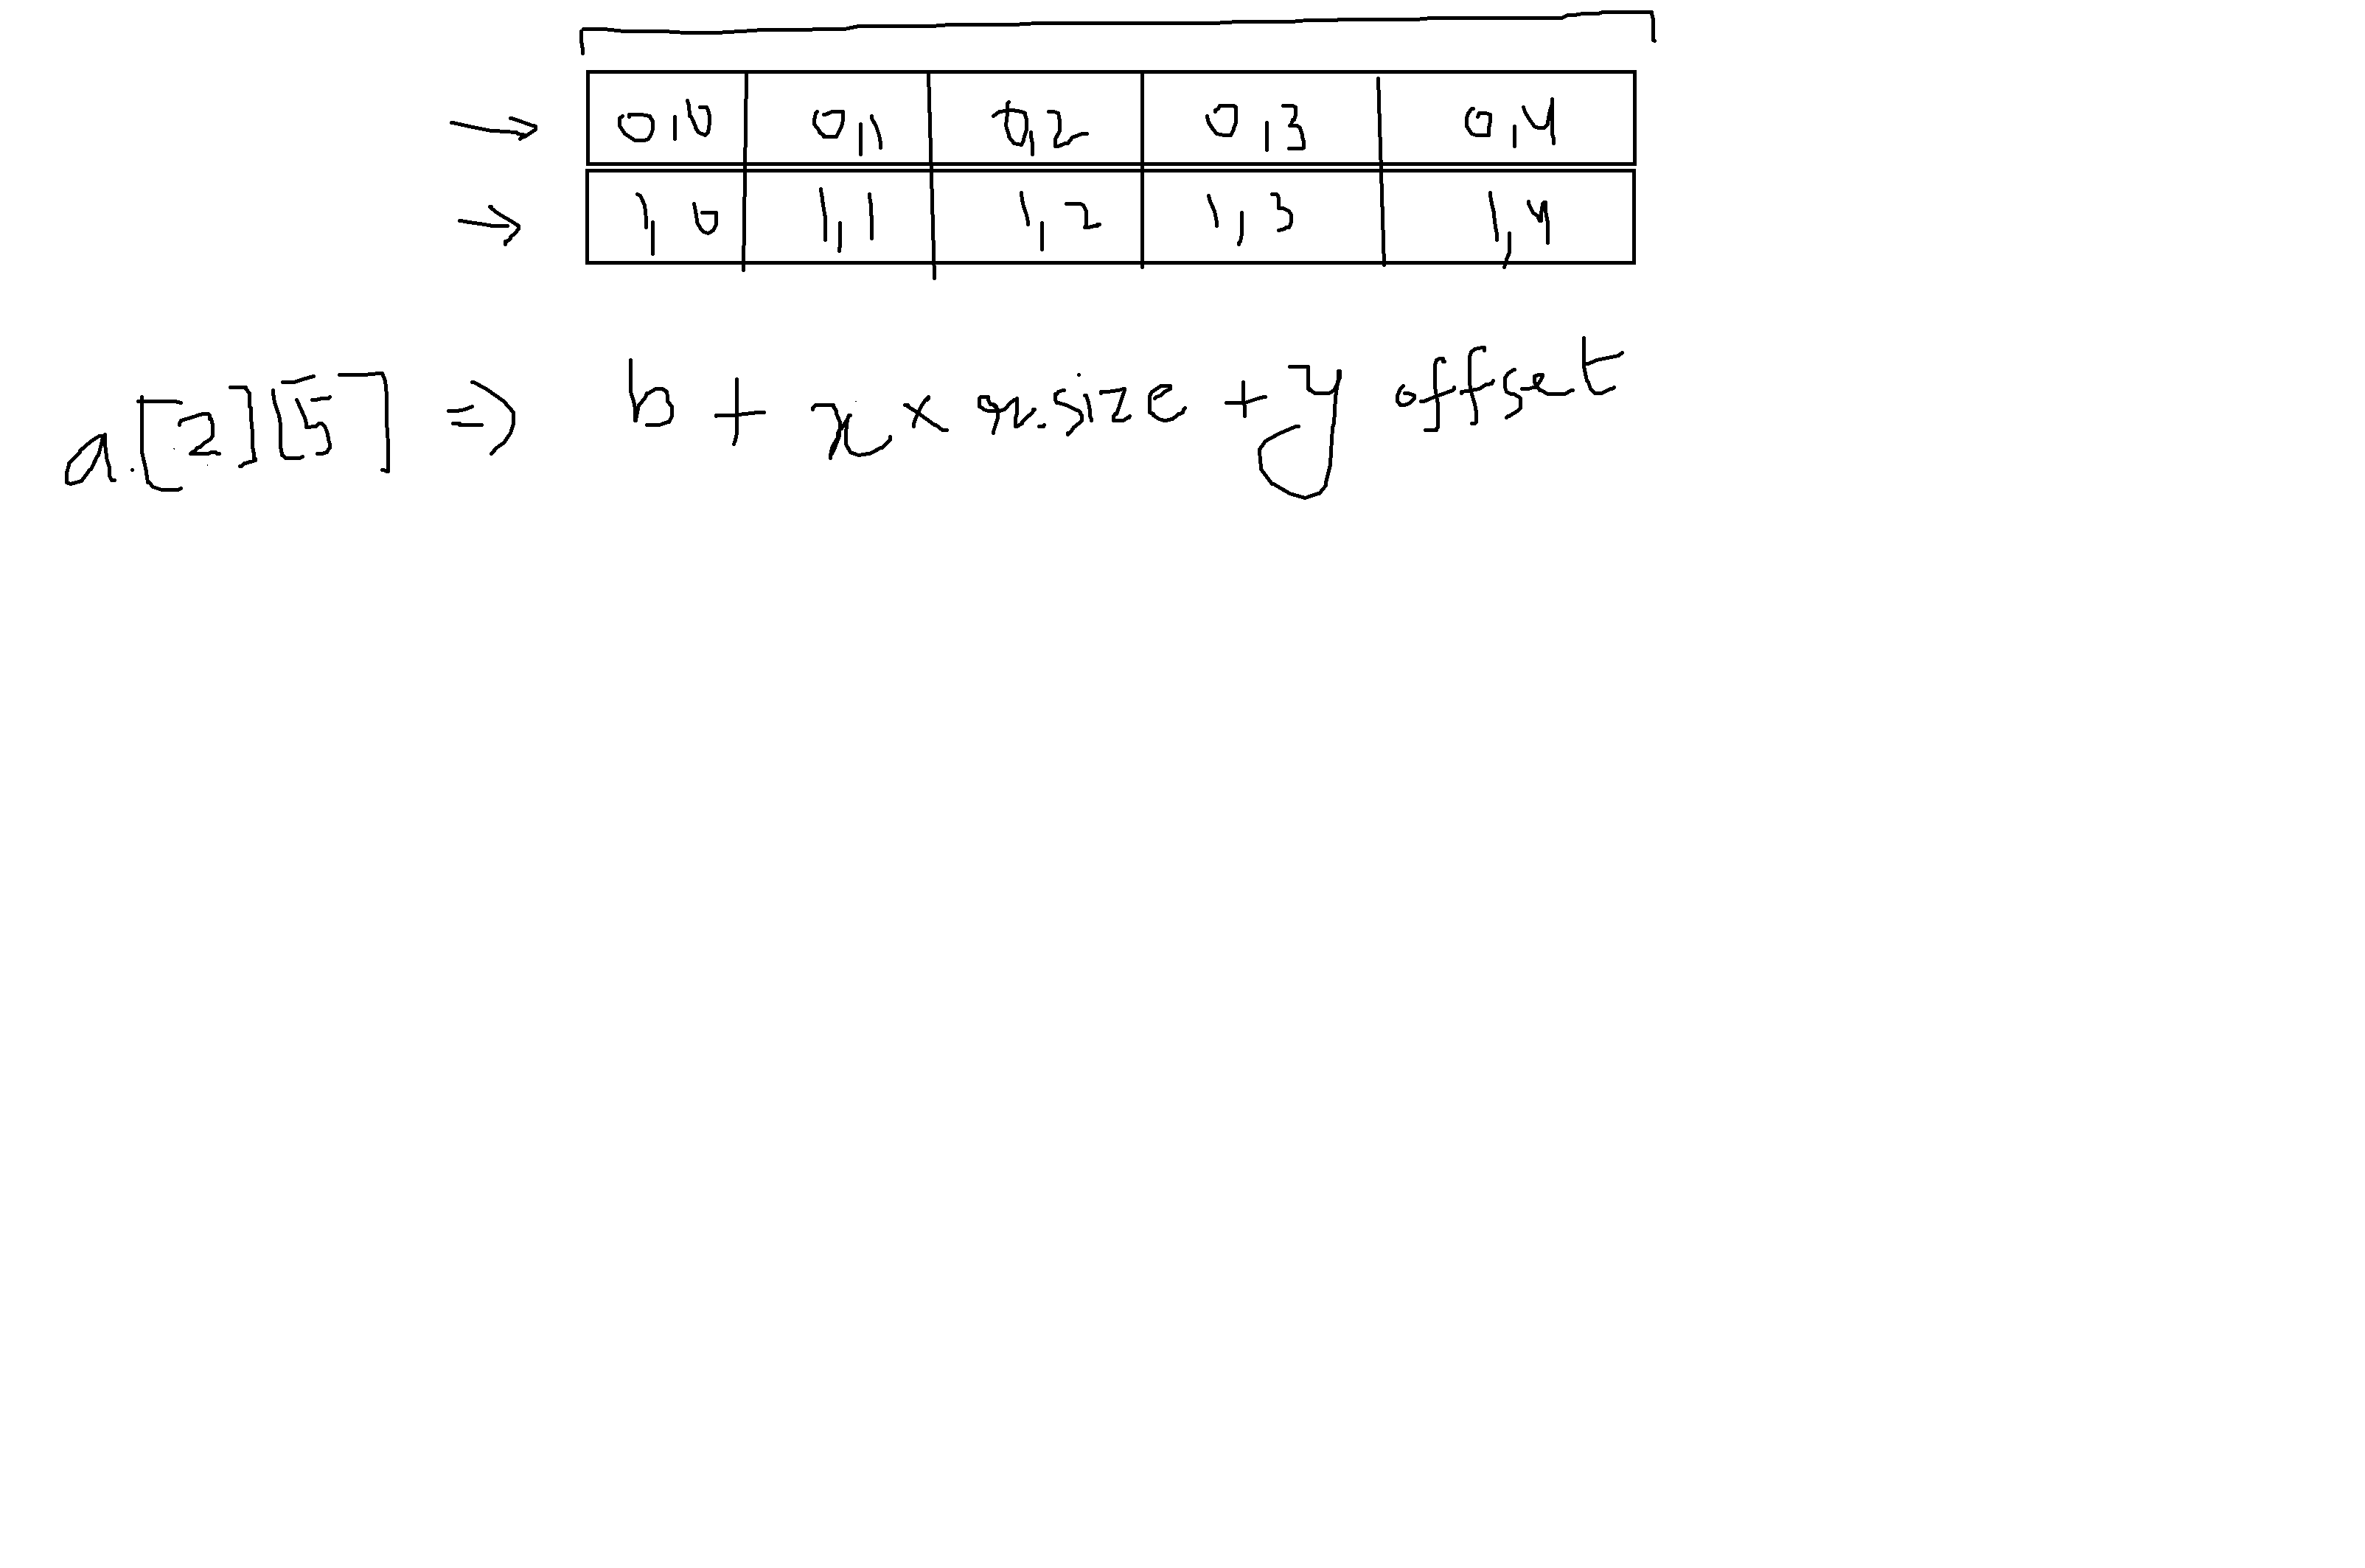 0,0 0,1 0,2 0,3 0,4
1,0 1,1 1,2 1,3 1,4
a.[2][5] => b + x × x.size + y offset